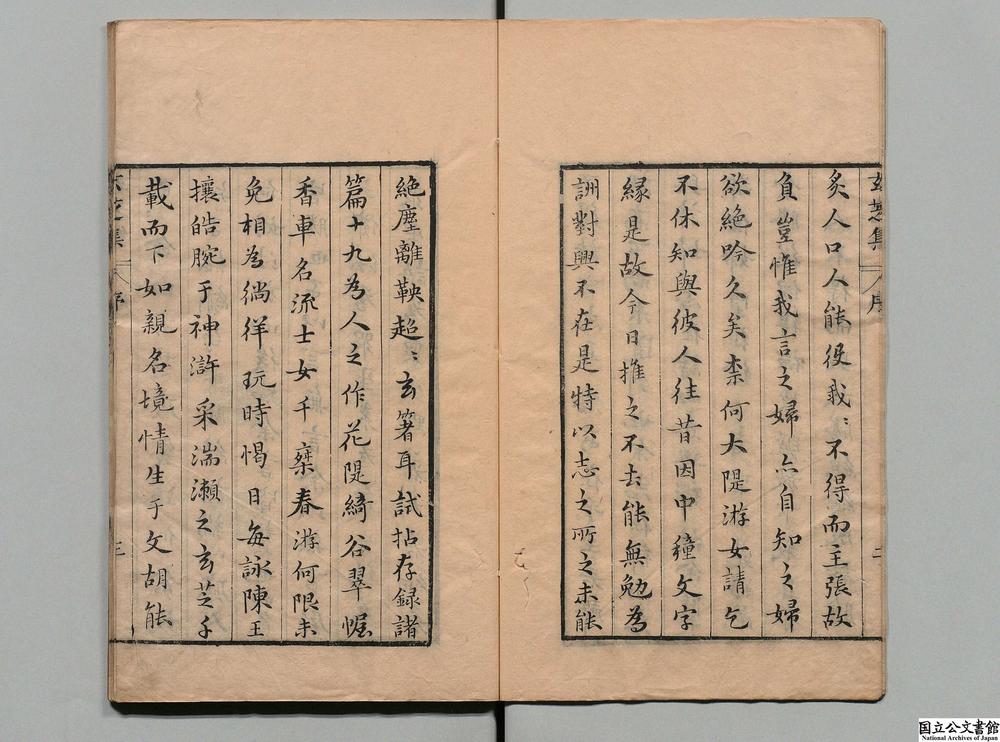 玄芝集
序
二
炙人口人能役我〻不得而主張故
負豈惟我言之婦亦自知之婦
欲絶吟久矣柰何大隄游女請乞
不休知與彼人往昔因中種文字
縁是故今日推之不去能無勉為
詶對興不在是特以志之所之未能
絶塵離鞅超〻玄箸耳試拈存録諸
篇十九為人之作花隄綺谷翠幄
香車名流士女千羣春游何限未
免相為徜徉玩時愒日每詠陳王
攘皓腕于神滸采湍瀬之玄芝千
載而下如親名境情生于文胡能
玄芝集
序
三
国立公文書館
National Archives of Japan